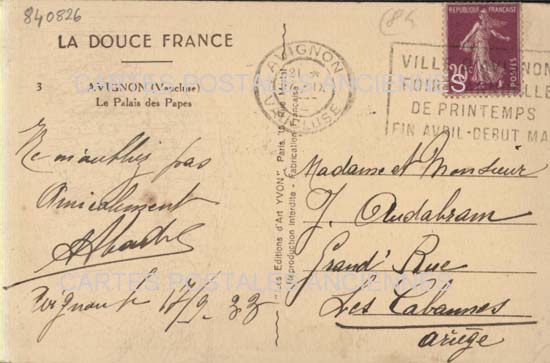 840826
(84
LA DOUCE FRANCE
3 AVIGNON (Vaucluse)
Le Palais des Papes
Ne m'oubliez pas
Amicalement
17/9. 33
Editions d'Art YVON, Paris, 15, Rue
Reproduction interdite - Fabrication Française
AVIGNON
VAUCLUSE
REPUBLIQUE FRANÇAISE
20c
POSTES
VILLE D'AVIGNON
FOIRE
DE PRINTEMPS
FIN AVRIL-DEBUT MA
Madame et Monsieur
J. Audabram
Grand' Rue
Les Cabannes
Ariège
CARTES POSTALES ANCIENNES
CARTES POSTALES ANCIENNES